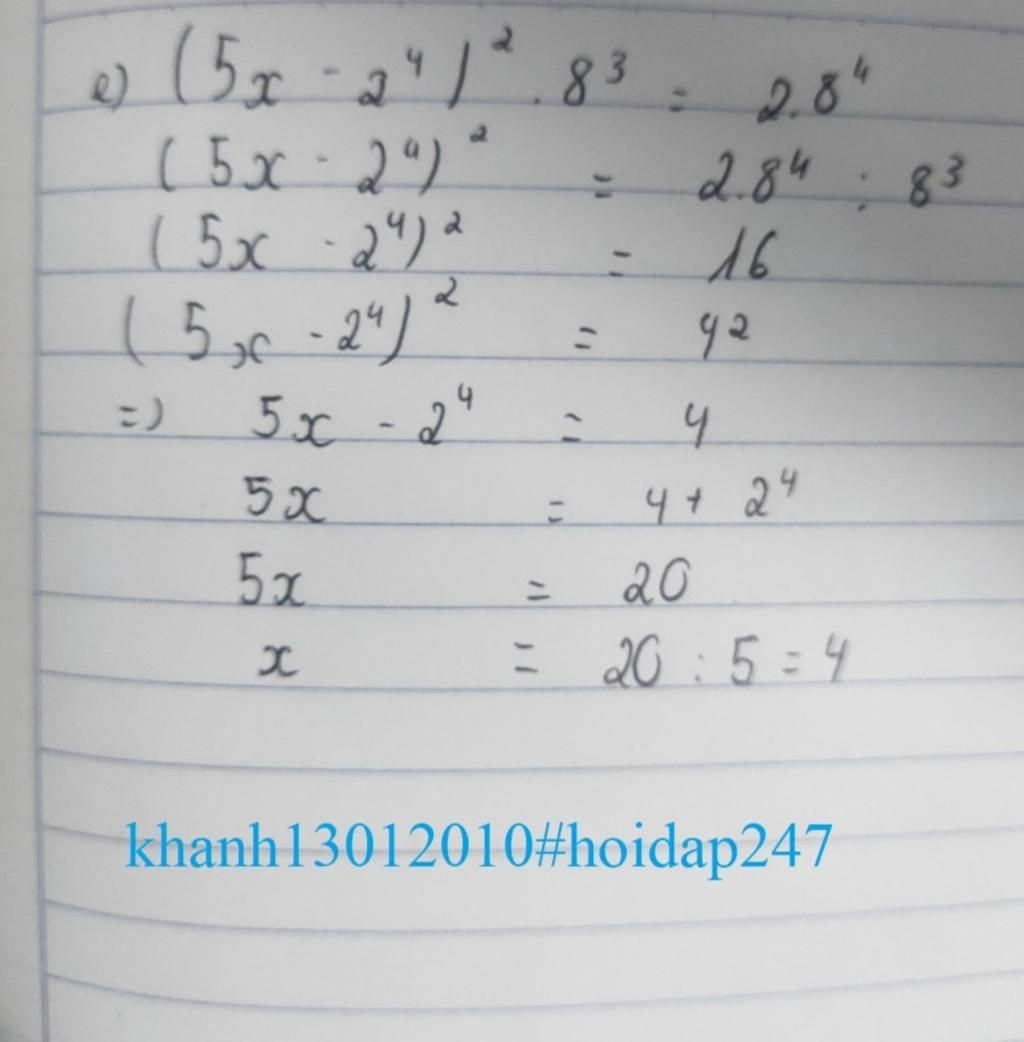 e) (5x - 2⁴)² . 8³ = 2.8⁴
(5x - 2⁴)² = 2.8⁴ : 8³
(5x - 2⁴)² = 16
(5x - 2⁴)² = 4²
=) 5x - 2⁴ = 4
5x = 4 + 2⁴
5x = 20
x = 20 : 5 = 4
khanh13012010#hoidap247